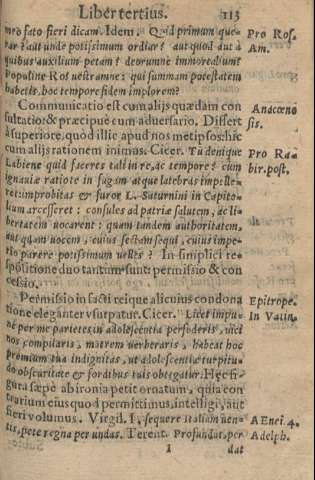 Liber tertius. 113
meo fato fieri dicam. Idem. Quid primum que-
rar? aut unde potissimum ordiar? aut quod aut à
quibus auxilium petam? deorumne immortalium?
Populine Rom. vestramne: qui summam potestatem
habetis, hoc tempore fidem implorem?
Pro Ros.
Am.
Communicatio est cum alijs quædam con
sultatio: & præcipuè cum aduersario. Differt
à superiore, quod illic apud nos metipsos: hic
cum alijs rationem inimus. Cicer. Tu denique
Labiene quid faceres tali in re, ac tempore? cum
ignauiæ ratio te in fugam atque latebras impelle-
ret: improbitas & furor L. Saturnini in Capito-
lium arcesseret: consules ad patriæ salutem, ac li-
bertatem uocarent: quam tandem authoritatem,
aut quam uocem, cuius sectam sequi, cuius impe-
rio parere potissimum uelles? In simplici re
spositione duo tantum sunt: permissio & con
cessio.
Anacœno
sis.
Pro Ra-
bir. post.
Permissio in facti rei que alicuius condona
tione eleganter vsurpatur. Cicer. Licet impu-
nè per me parietes in adolescentia perfoderis, uici
nos compilaris, matrem uerberaris, habeat hoc
præmium tua indignitas, ut adolescentiæ turpitu-
do obscuritate & sordibus tuis obtegatur. Hęc fi-
gura sæpè ab ironia petit ornatum, quia con
trarium eius quod permittimus, intelligi, aut
fieri volumus. Virgil. I, sequere Italiam uen-
tis, pete regna per undas. Terent. Profundat, per
Epitrope.
In Vatin.
AEnei. 4.
Adelph.
I dat